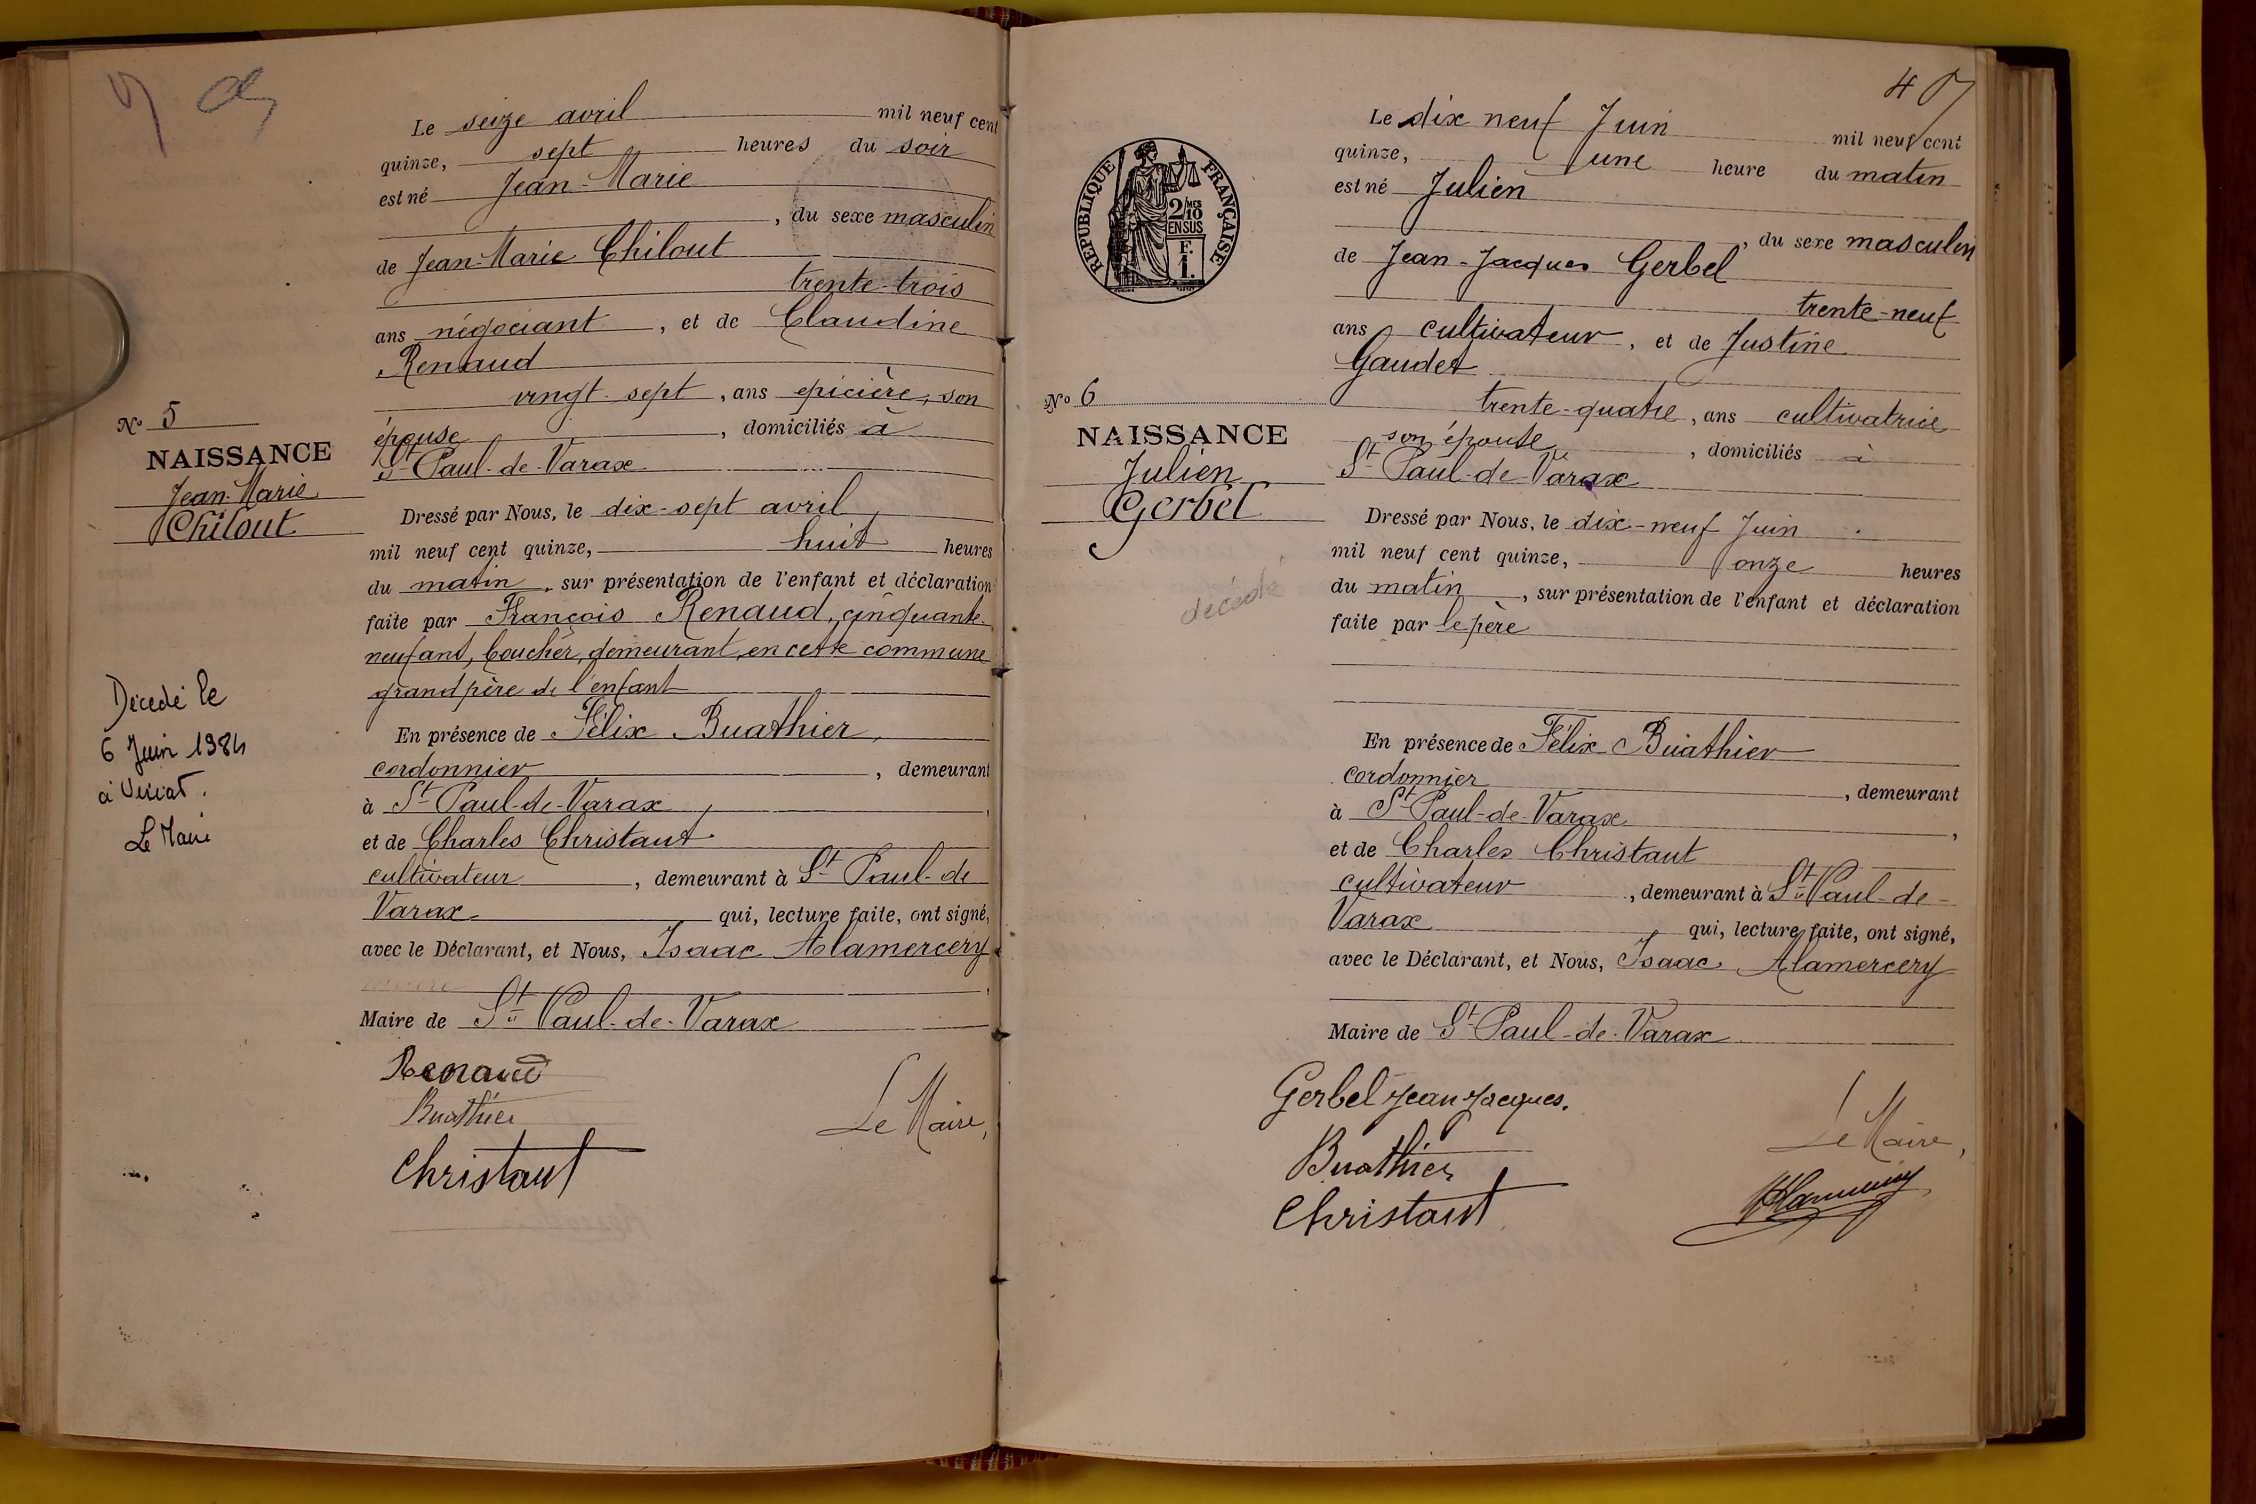 Le seize avril mil neuf cent
quinze, sept heures du soir
est né Jean-Marie
, du sexe masculin
de Jean-Marie Chilout
trente-trois
ans négociant, et de Claudine
Renaud
vingt-sept, ans épicière, son
épouse, domiciliés à
St Paul-de-Varax
N° 5
NAISSANCE
Jean-Marie
Chilout
Dressé par Nous, le dix-sept avril
mil neuf cent quinze, huit heures
du matin, sur présentation de l'enfant et déclaration
faite par François Renaud, cinquante-
neuf ans, boucher, demeurant en cette commune
grand père de l'enfant
Décédé le
6 Juin 1984
à Viriat.
Le Maire
En présence de Félix Buathier,
cordonnier, demeurant
à St Paul-de-Varax,
et de Charles Christaut
cultivateur, demeurant à St Paul-de
Varax qui, lecture faite, ont signé,
avec le Déclarant, et Nous, Isaac Alamercery
Maire de St Paul-de-Varax
Renaud
Buathier
Christaut
Le Maire,
Le dix neuf Juin mil neuf cent
quinze, une heure du matin
est né Julien
, du sexe masculin
de Jean-Jacques Gerbel
trente-neuf
ans cultivateur, et de Justine
Gaudet
trente-quatre, ans cultivatrice
son épouse, domiciliés à
St Paul-de-Varax
RÉPUBLIQUE FRANÇAISE
2/10 MES
EN SUS
F.
1.
N° 6
NAISSANCE
Julien
Gerbel
décédé
Dressé par Nous, le dix-neuf Juin
mil neuf cent quinze, onze heures
du matin, sur présentation de l'enfant et déclaration
faite par le père
En présence de Félix Buathier
cordonnier, demeurant
à St Paul-de-Varax,
et de Charles Christaut
cultivateur, demeurant à St Paul-de-
Varax qui, lecture faite, ont signé,
avec le Déclarant, et Nous, Isaac Alamercery
Maire de St Paul-de-Varax
Gerbel Jean-Jacques.
Buathier
Christaut
Le Maire,
Alamercery